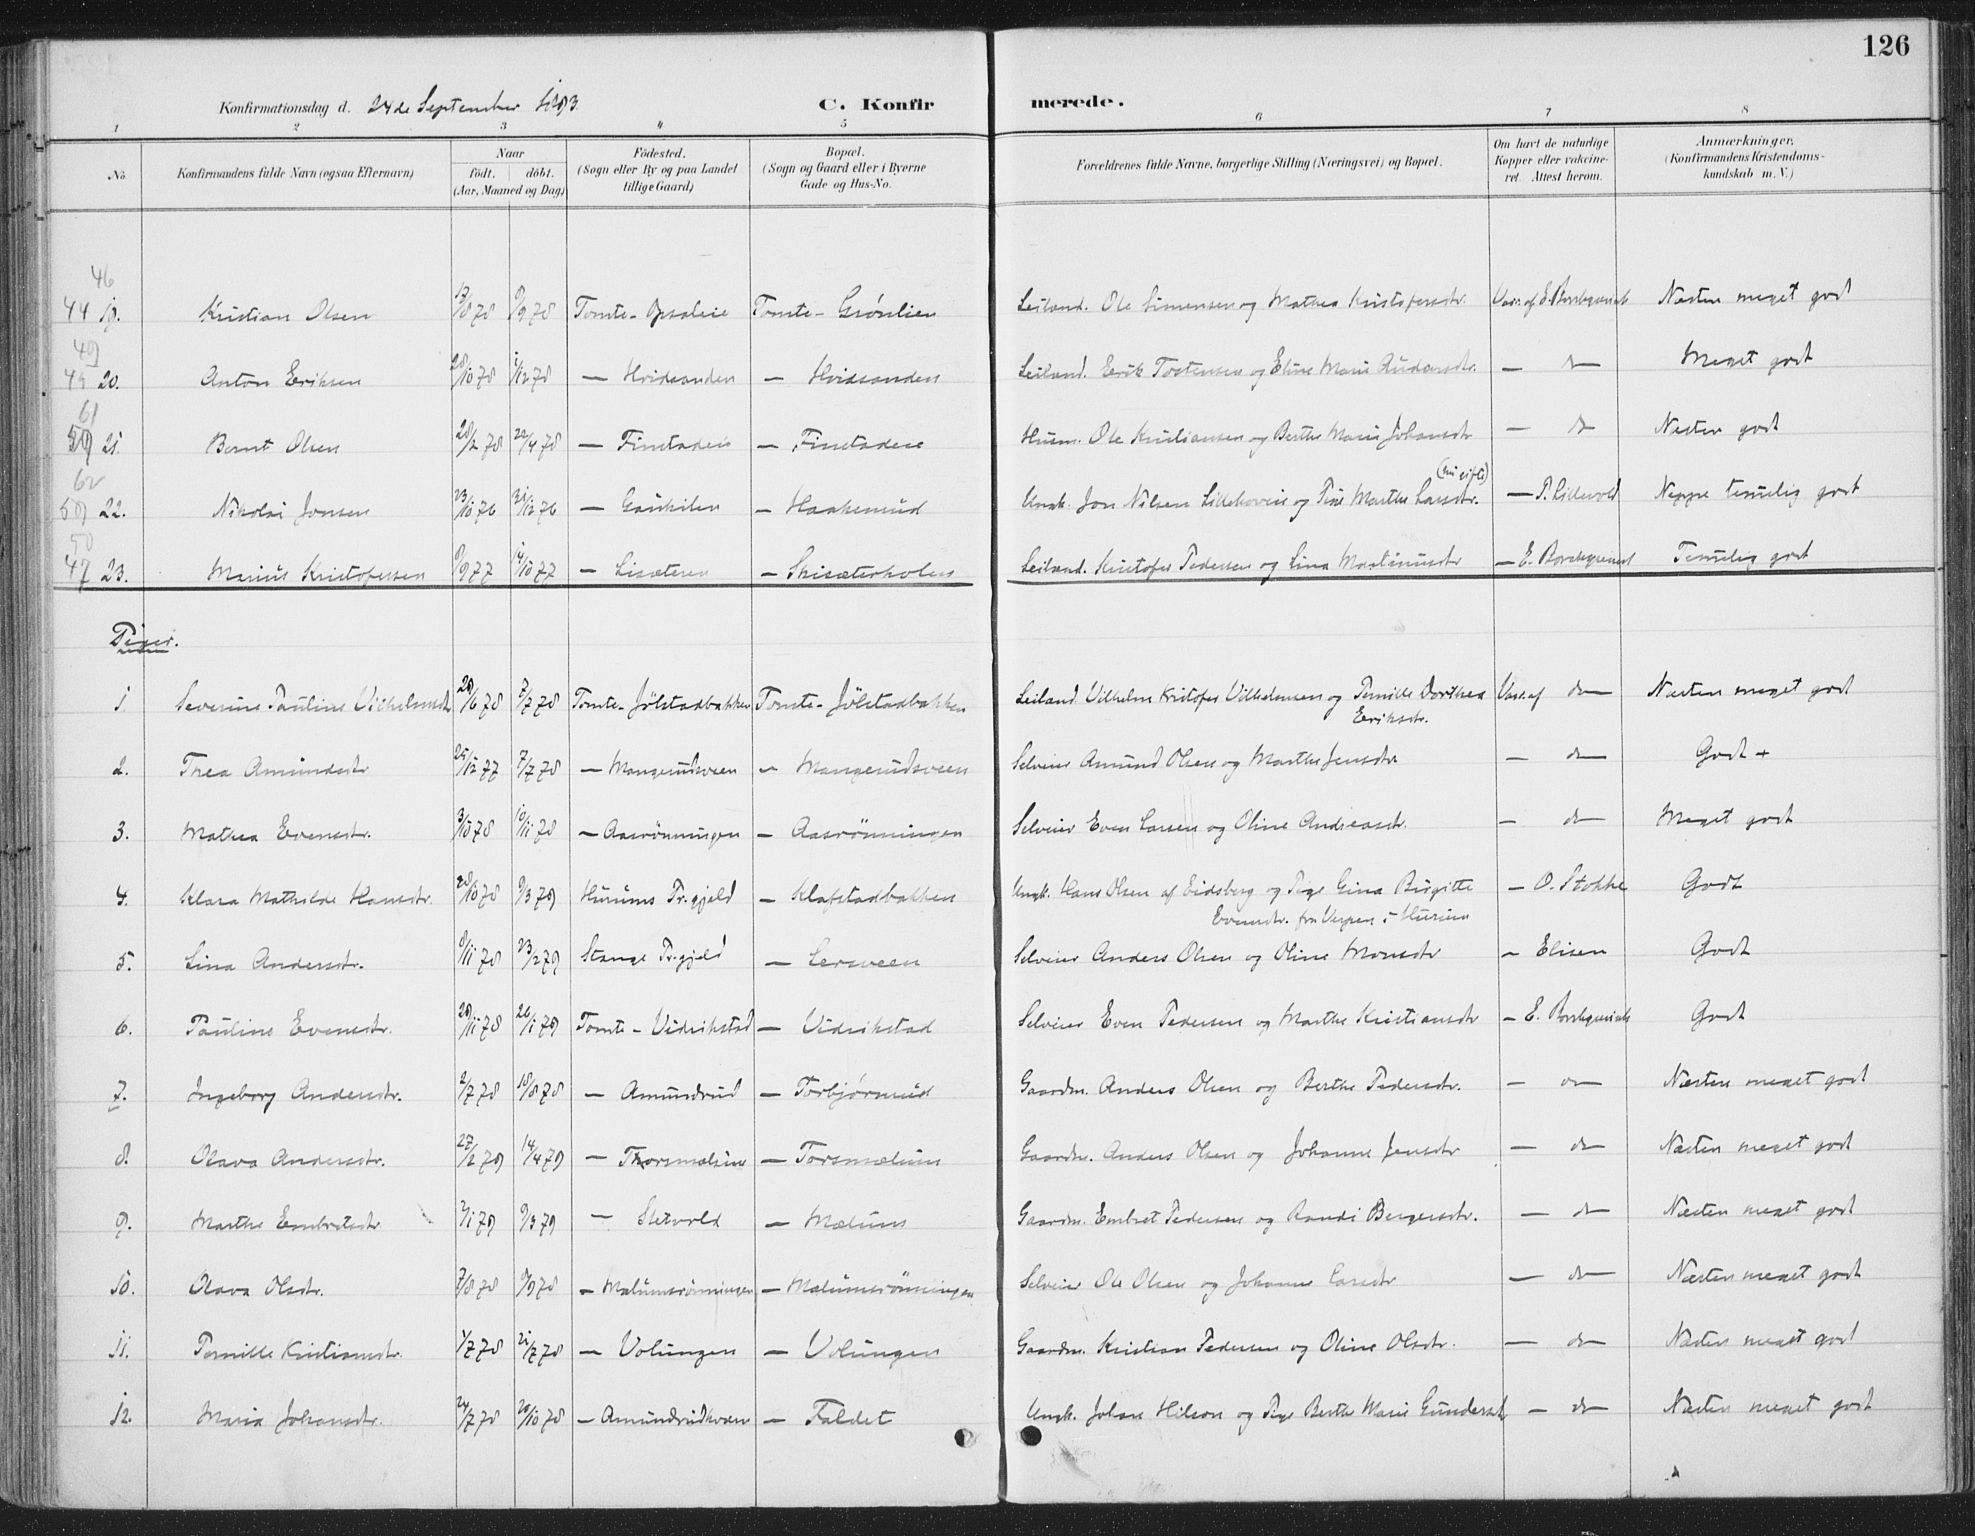 126
Konfirmationsdag d. 24de September 1893.
C. Konfir merede.
1 2 3 4 5 6 7 8
No
Konfirmandens fulde Navn (ogsaa Efternavn)
Naar
födt. döbt.
(Aar, Maaned og Dag)
Födested.
(Sogn eller By og paa Landet
tillige Gaard)
Bopæl.
(Sogn og Gaard eller i Byerne
Gade og Hus-No.
Forældrenes fulde Navne, borgerlige Stilling (Næringsvei) og Bopæl.
Om havt de naturlige
Kopper eller vakcine-
ret. Attest herom.
Anmærkninger.
(Konfirmandens Kristendoms-
kundskab m. V.)
46
44 19. Kristian Olsen 8 78 9 78 Tomte - Opsaleie Tomte - Grønlien Leiland. Ole Simensen og Mathea Kristofersdtr. Vacc. af E. Borchgrevink Næsten meget godt
49
20. Anton Eriksen 28/10 78 1/12 78 — Hvidsanden — Hvidsanden Leiland. Erik Tostensen og Eline Marie Audensdtr. — do — Meget godt
61
21. Bernt Olsen 28/2 78 22/4 78 — Finstadeie — Finstadeie Husm. Ole Kristiansen og Berthe Marie Johansdtr — do Næsten godt
62 (nu gifte)
59 22. Nikolai Jonsen 23/10 76 31/12 76 — Gaukilen — Haakenrud Ungk. Jon Nilsen Lillehoveie og Pige Marthe Larsdtr. — P. Lillevold Neppe temelig godt
50
47 23. Marius Kristofersen 9/9 77 14/10 77 — Lisæteren — Skisæterholen Leiland. Kristofer Pedersen og Lina Martinusdtr — E. Borchgrevink Temelig godt
Piger.
1. Severine Pauline Vilhelmsdtr 28/6 78 8/7 78 Tomte - Jölstadbakken Tomte - Jölstadbakken Leiland Vilhelm Kristofer Vilhelmsen og Pernille Dorthea Vacc. af do — Næsten meget godt
Eriksdtr.
2. Thea Amundsdtr 25/12 77 7/7 78 — Mangerudsveen — Mangerudsveen Selveier Amund Olsen og Marthe Jensdtr — do — Godt +
3. Mathea Evensdtr. 3/10 78 10/11 78 — Aasrönningen — Aasrönningen Selveier Even Larsen og Oline Andreasdtr. — do Meget godt
4. Klara Mathilde Hansdtr. 28/10 78 9/3 79 Hurums Pr.gjeld — Klafstadbakken Ungk. Hans Olsen af Eidsberg og Pige Gina Birgitte — O. Stokke Godt
Evensdtr. fra Verpen i Hurum
5. Lina Andersdtr. 8/11 78 23/2 79 Stange Pr.gjeld — Lersveen Selveier Anders Olsen og Oline Monsdtr — Elisen Godt
6. Pauline Evensdtr. 29/11 78 26/1 79 Tomte - Vidrikstad — Vidrikstad Selveier Even Pedersen og Marthe Kristiansdtr — E. Borchgrevink Godt
7. Ingeborg Andersdtr. 2/7 78 18/8 78 — Amundrud — Torbjörnrud Gaardm. Anders Olsen og Berthe Pedersdtr. — do — Næsten meget godt
8. Olava Andersdtr. 27/2 79 14/4 79 — Thorsmælum — Torsmælum Gaardm. Anders Olsen og Johanne Jensdtr — do — Næsten meget godt
9. Marthe Embretsdtr 2/1 79 9/3 79 — Sletvold — Mælum Gaardm. Embret Pedersen og Randi Bergersdtr. — do — Næsten meget godt
10. Olava Olsdtr. 7/8 78 8/9 78 — Mælumsrönningen — Mælumsrönningen Selveier Ole Olsen og Johanne Larsdtr — do — Næsten meget godt
11. Pernille Kristiansdtr. 1/7 78 21/7 78 — Volungen — Volungen Gaardm. Kristian Pedersen og Oline Olsdtr. — do — Næsten meget godt
12. Maria Johansdtr. 24/7 78 20/10 78 — Amundrudsveen — Faldet Ungk. Johan Nilson og Pige Berthe Marie Gundersdtr — do — Næsten meget godt